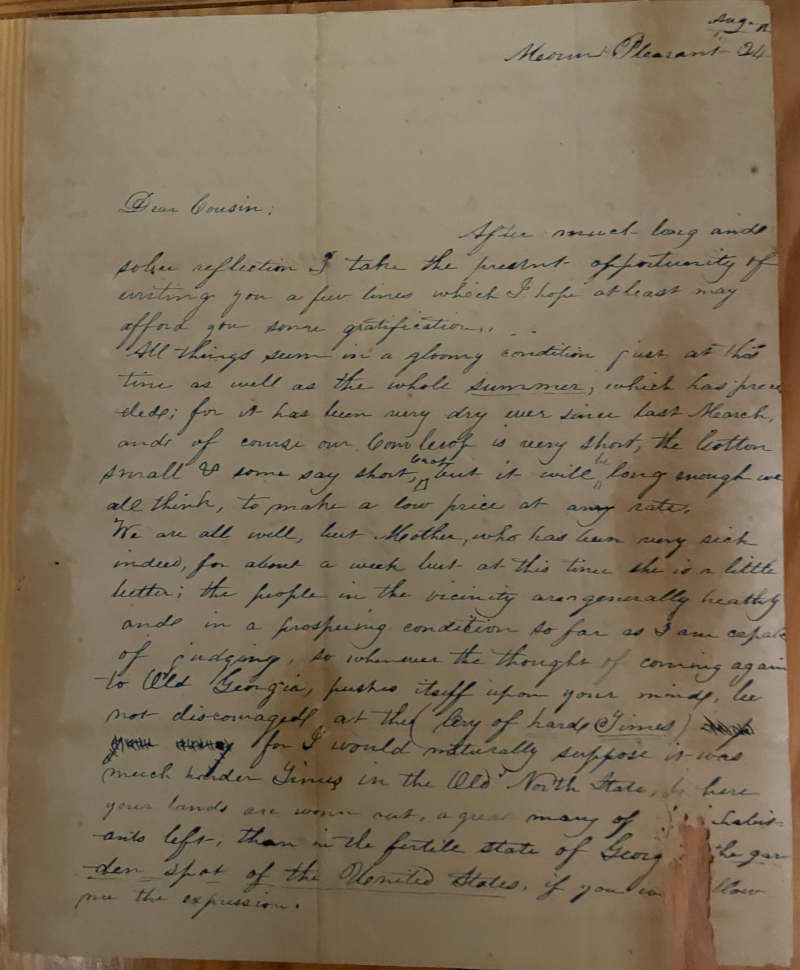 Aug.
Mount Pleasant 24
Dear Cousin;
After much long and
sober reflection I take the present opportunity of
writing you a few lines which I hope at least may
afford you some gratification.
All things seem in a gloomy condition just at this
time as well as the whole summer, which has prece
ded; for it has been very dry ever since last March,
and of course our Corn crop is very short, the Cotton
small & some say short, but it will be long enough we
all think, to make a low price at any rate.
We are all well, but Mother, who has been very sick
indeed, for about a week but at this time she is a little
better; the people in the vicinity are generally healthy
and in a prospering condition so far as I am capab
of judging, so whenever the thought of coming again
to Old Georgia, pushes itself upon your mind, be
not discouraged at the (Cry of hard Times)
for I would naturally suppose it was
much harder Times in the Old North State, where
your lands are worn out, a great many of habit-
ants left, than in the fertile state of Georg the gar
den spot of the United States, if you allow
me the expression.